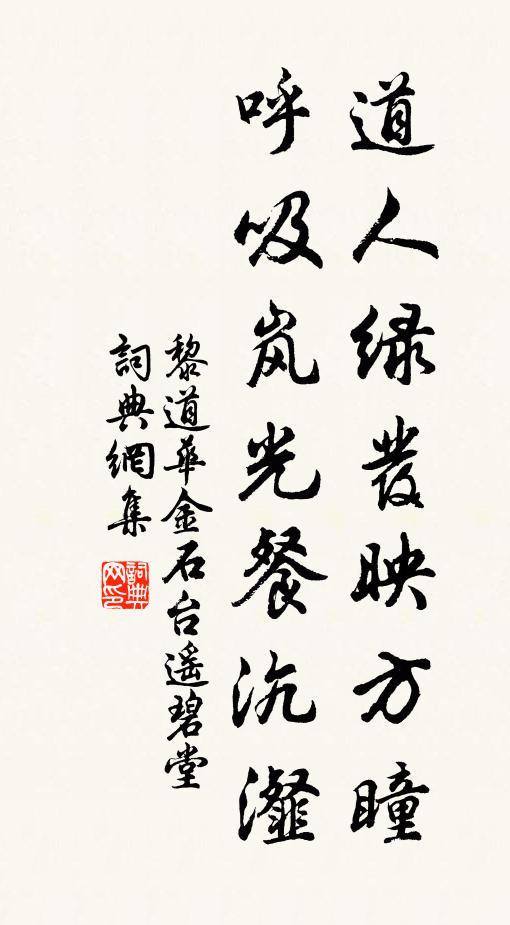 道人绿发映方瞳
呼吸岚光餐沆瀣
黎道华金石台遥碧堂
詞典網集
詞典网印